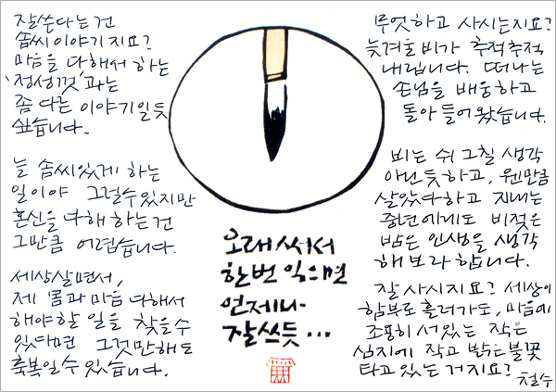 잘쓴다는건
솜씨이야기지요?
마음을 다해서 하는
'정성껏'과는
좀 다른 이야기일듯
싶습니다.
늘 솜씨있게 하는
일이야 그럴수있지만
혼신을 다해 하는건
그만큼 어렵습니다.
세상살면서,
제 몸과 마음 다해서
해야할 일을 찾을수
있다면 그것만해도
축복일수있습니다.
오래 써서
한번 익으면
언제나
잘쓰듯...
무엇하고 사시는지요?
늦겨울비가 추적추적
내립니다. 떠나는
손님을 배웅하고
돌아 들어왔습니다.
비는 쉬 그칠 생각
아닌듯하고, 웬만큼
살았다하고 지내는
중년에게도 비젖은
밤은 인생을 생각
해보라 합니다.
잘 사시지요? 세상이
함부로 흘러가도, 마음에
조용히 서있는 작은
심지에 작고 밝은불꽃
타고 있는 거지요?
철수